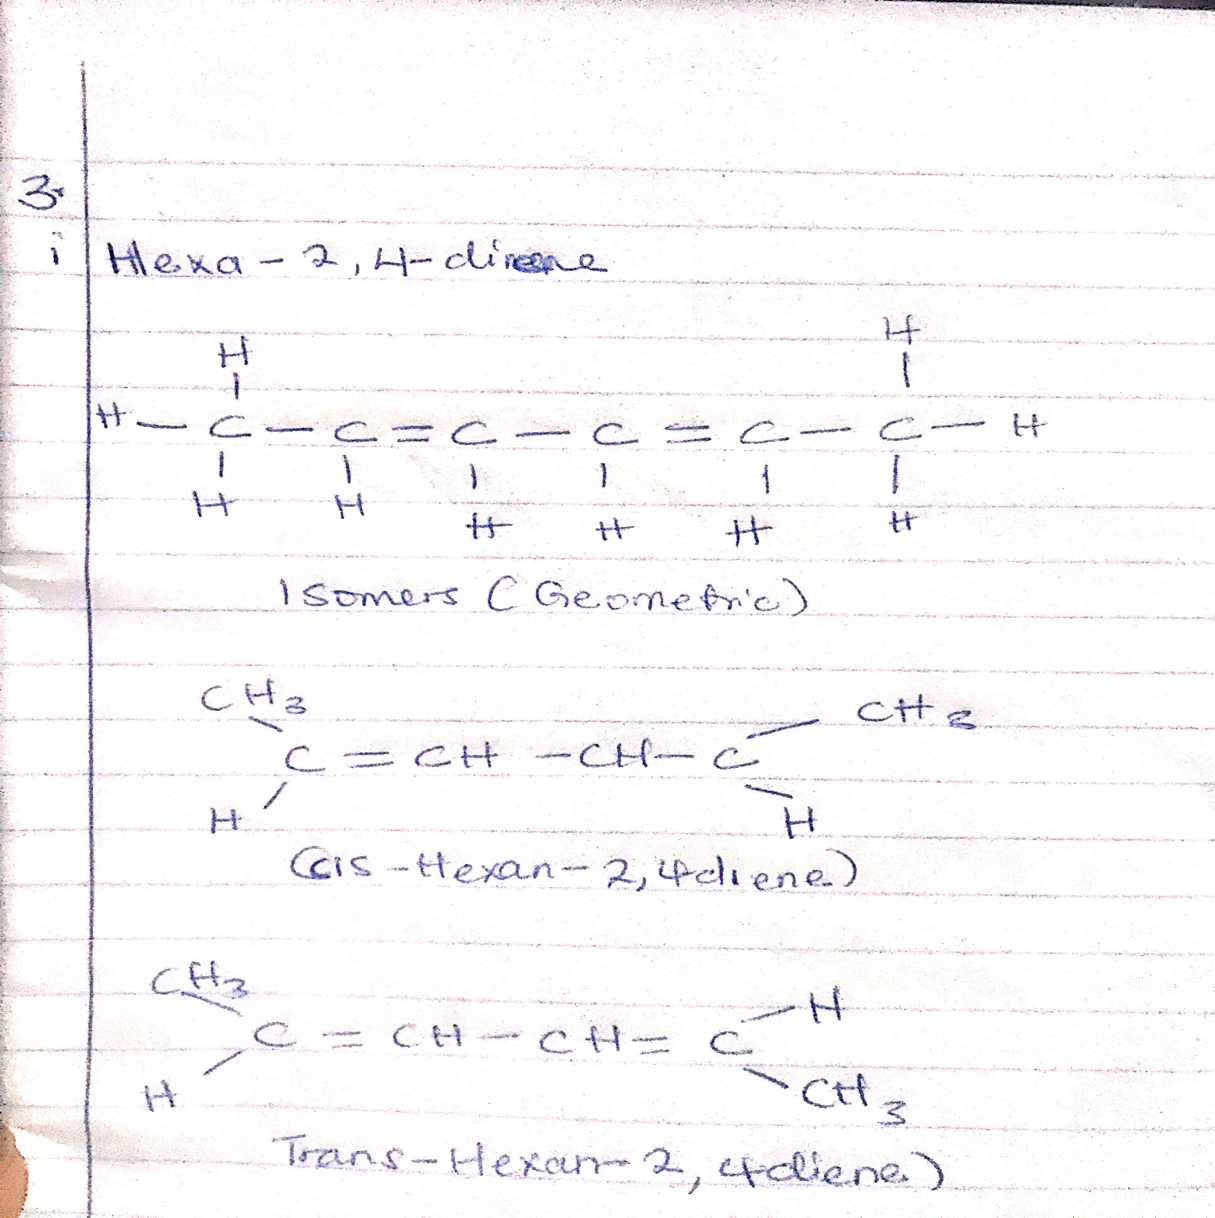 3.
i Hexa - 2, 4-diene
H H
H - C - C = C - C = C - C - H
H H H H H H
Isomers (Geometric)
CH3 CH3
C = CH - CH - C
H H
(cis - Hexan - 2, 4diene)
CH3 H
C = CH - CH = C
H CH3
Trans - Hexan - 2, 4diene)